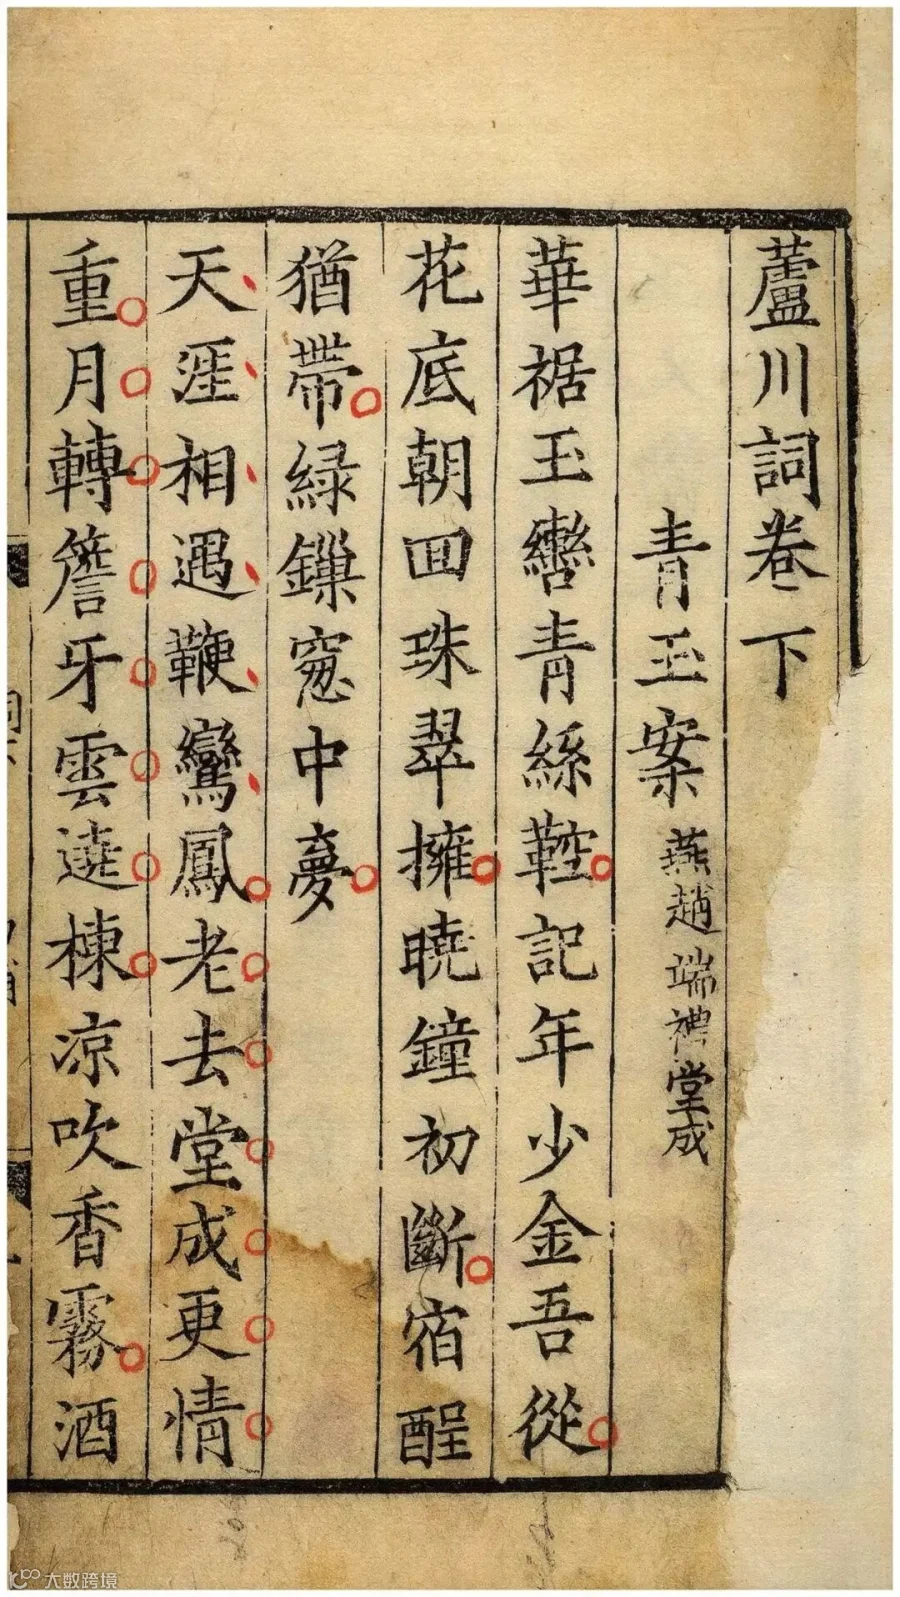 蘆川詞卷下
青玉案 燕趙端禮堂成
華裾玉轡青絲鞚記年少金吾從
花底朝回珠翠擁曉鐘初斷宿酲
猶帶綠鏁窓中夢
天涯相遇鞭鸞鳳老去堂成更情
重月轉簷牙雲遶棟凉吹香霧酒
大数跨境